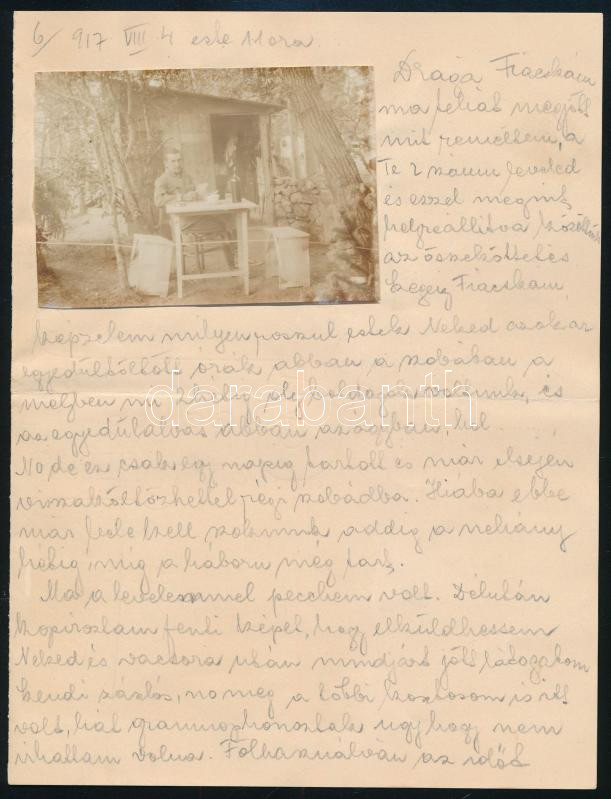 6/ 917 VIII 4 este 11 ora
Drága Fiacskám
ma délután megjött
mit reméltem, a
Te 2 számu leveled
és ezzel megint
helyreállitva közöttünk
az összeköttetés
Szegény Fiacskám
képzelem milyen rosszul estek Neked azok az
egyedültöltött órák abban a szobában a
melyben mi oly boldogok voltunk, és
az egyedülalvás abban az ágyban,
No de ez csak egy napig tartott és már
visszaköltözhettél régi szobádba. Hiába ebbe
már bele kell szoknunk addig a néhány
hétig, míg a háboru még tart.
Ma a levelemmel pechem volt. Délután
kopiroztam fenti képet, hogy elküldhessem
Neked és vacsora után mindjárt jött látogatóm
Bendi zászlós, no meg a többi kosztosom is itt
volt, hát grammophonoztak ugy hogy nem
irhattam volna. Felhasználván az időt
darabanth